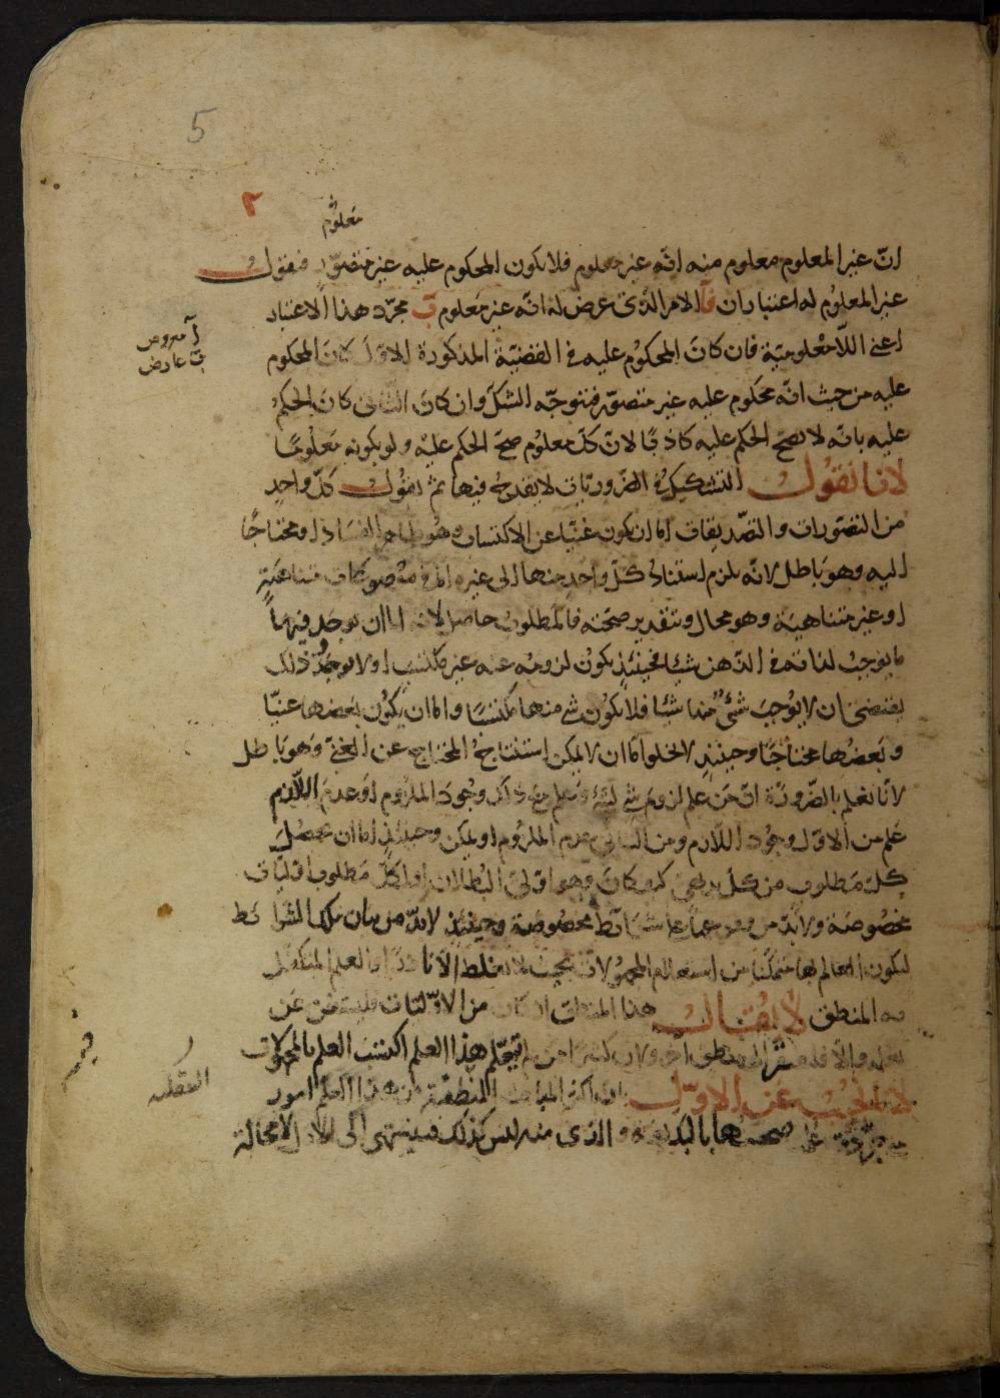 5
٢
معلوم
انّ غير المعلوم معلوم منه انّه غير معلوم فلا يكون المحكوم عليه غير متصوّر فنقول
غير المعلوم له اعتباران آ الامر الّذى عرض له انّه غير معلوم ب مجرّد هذا الاعتبار
آ معروض
ب عارض
اعنى اللّامعلوميّة فان كان المحكوم عليه فى القضيّة المذكورة الاوّل كان المحكوم
عليه من حيث انّه محكوم عليه غير متصوّر فتوجّه الشكّ وان كان الثانى كان الحكم
عليه بانّه لا يصحّ الحكم عليه كاذبًا لانّ كلّ معلوم صحّ الحكم عليه ولو بكونه معلومًا
لانا نقول التشكيك فى الضّروريّات لا يقدح فيها ثمّ نقول كلّ واحد
من التصّورات والتصّديقات اما ان يكون غنيّا عن الاكتساب وهو ظاهر الفساد او محتاجًا
اليه وهو باطل لانّه يلزم استناد كلّ واحد منها الى غيره امّا فى موضوعات متناهية
او غير متناهية وهو محال وبتقدير صحّته فالمطلوب حاصل لانه اما ان يوجد فيها
ما يوجب لذاته فى الذّهن شيئا فحينئذ يكون لزومه عنه غير مكتسب او لا يوجد وذلك
يقتضى ان لا يوجب شئ منها شيئا فلا يكون شئ منها مكتسبًا واما ان يكون بعضها غنيّا
وبعضها محتاجًا وحينئذ لا يخلو امّا ان لا يمكن استنتاج المحتاج عن الغنىّ وهو باطل
لانّا نعلم بالضّرورة انّ من علم لزوم شئ لشئ وعلم مع ذلك وجود الملزوم او عدم اللّازم
علم من الاوّل وجود اللازم ومن الثانى عدم الملزوم او يمكن وحينئذ اما ان يحصل
كلّ مطلوب من كلّ بديهى كيف كان وهو اوّلىّ البطلان او لكلّ مطلوب اوّليّات
مخصوصة ولا بدّ من وقوعها على شرائط مخصوصة وحينئذ لا بدّ من بيان تلك الشرائط
ليكون العالم بها متمكّنًا من استعلام المجهولات بحيث لا يغلط الّا نادرًا والعلم المتكفل
به المنطق لا يقال هذا المنطق ان كان من الاوّليات فليستغن عن
تعلمه والّا فليفتقر الى منطق آخر ولان كثيرا من لم يتعلّم هذا العلم اكتسب العلم بالمجهولات
لانا نجيب عن الاوّل بان اكثر المباحث المنطقيّة من هذا العلم امور
على صحتها بالبديهة والذى منه ليس كذلك فينتهى الى الاوّل لا محالة